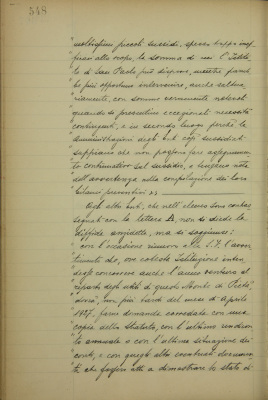 348
" moltissimi piccoli sussidi, spesso troppo inef-
" ficaci allo scopo, la somma di cui l'Istitu-
" to di San Paolo può disporre, mentre sareb-
" be più opportuno intervenire, anche saltua-
" riamente, con somme veramente notevoli
" quando si presentino eccezionali necessità
" contingenti, e in secondo luogo perchè le
" Amministrazioni degli Enti così sussidiati
" sappiano che non possono fare assegnamen-
" to continuativo sul sussidio, e tengano nota
" dell'avvertenza nella compilazione dei loro
" bilanci preventivi »
Agli altri Enti, che nell'elenco sono contras-
segnati con la lettera B, non si diede la
diffida anzidetta, ma si soggiunse:
" con l'occasione rinnovo alla S.V. l'avver-
" timento che, ove codesta Istituzione inten-
" desse concorrere anche l'anno venturo al
" reparto degli utili di questo Monte di Pietà
" dovrà, non più tardi del mese di Aprile
" 1927, farne domanda corredata con una
" copia dello Statuto, con l'ultimo rendicon-
" to annuale e con l'ultima situazione dei
" conti, e con quegli altri eventuali documen-
" ti che fossero atti a dimostrare lo stato di